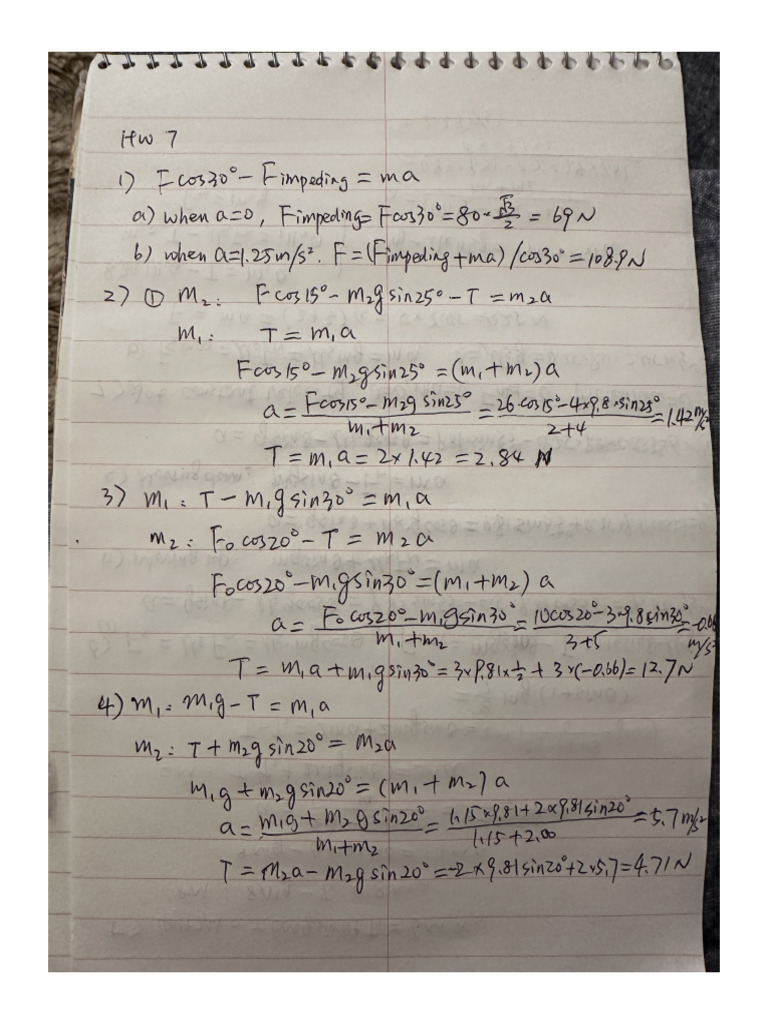 HW 7
1) Fcos30° - Fimpeding = ma
a) when a=0, Fimpeding = Fcos30° = 80 × √3/2 = 69N
b) when a=1.25m/s². F = (Fimpeding + ma) / cos30° = 108.9N
2) ① m₂: Fcos15° - m₂g sin25° - T = m₂a
m₁: T = m₁a
Fcos15° - m₂g sin25° = (m₁ + m₂) a
a = (Fcos15° - m₂g sin25°)/(m₁+m₂) = (26·cos15° - 4×9.8·sin25°)/(2+4) = 1.42 m/s²
T = m₁a = 2 × 1.42 = 2.84 N
3) m₁: T - m₁g sin30° = m₁a
m₂: F₀cos20° - T = m₂a
F₀cos20° - m₁g sin30° = (m₁ + m₂) a
a = (F₀cos20° - m₁g sin30°)/(m₁+m₂) = (10cos20° - 3·9.8 sin30°)/(3+5) = -0.66 m/s²
T = m₁a + m₁g sin30° = 3×9.81×½ + 3×(-0.66) = 12.7N
4) m₁: m₁g - T = m₁a
m₂: T + m₂g sin20° = m₂a
m₁g + m₂g sin20° = (m₁ + m₂) a
a = (m₁g + m₂g sin20°)/(m₁+m₂) = (1.15×9.81 + 2×9.81 sin20°)/(1.15+2.00) = 5.7 m/s²
T = m₂a - m₂g sin20° = -2×9.81 sin20° + 2×5.7 = 4.71N